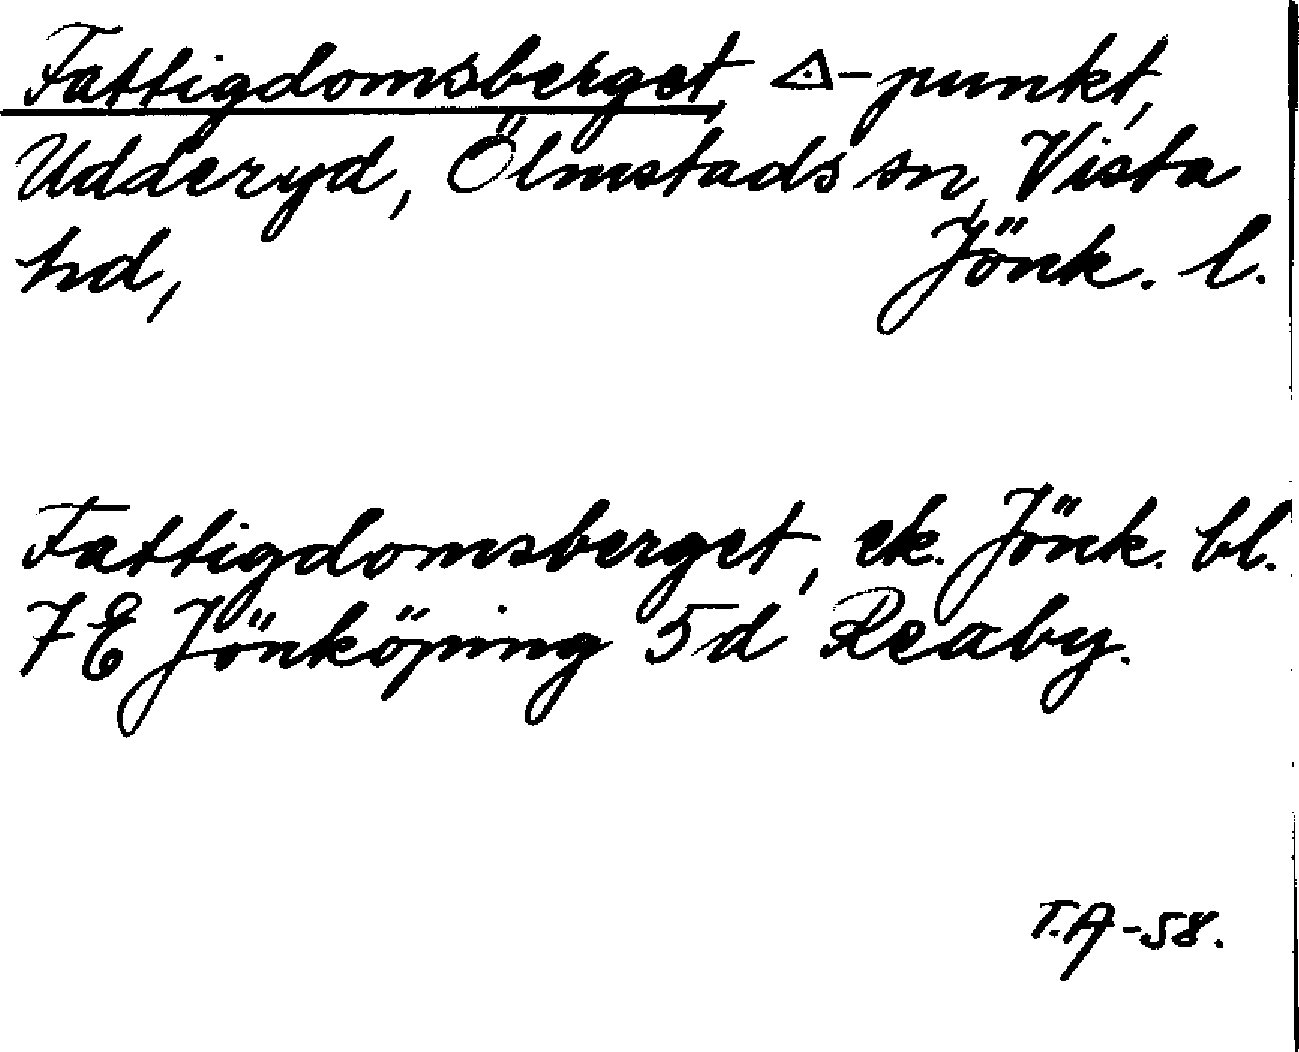 Fattigdomsberget, △-punkt,
Udderyd, Ölmstads sn, Vista
hd, Jönk. l.
Fattigdomsberget, ek. Jönk. bl.
7E Jönköping 5d Reaby.
T.A-58.